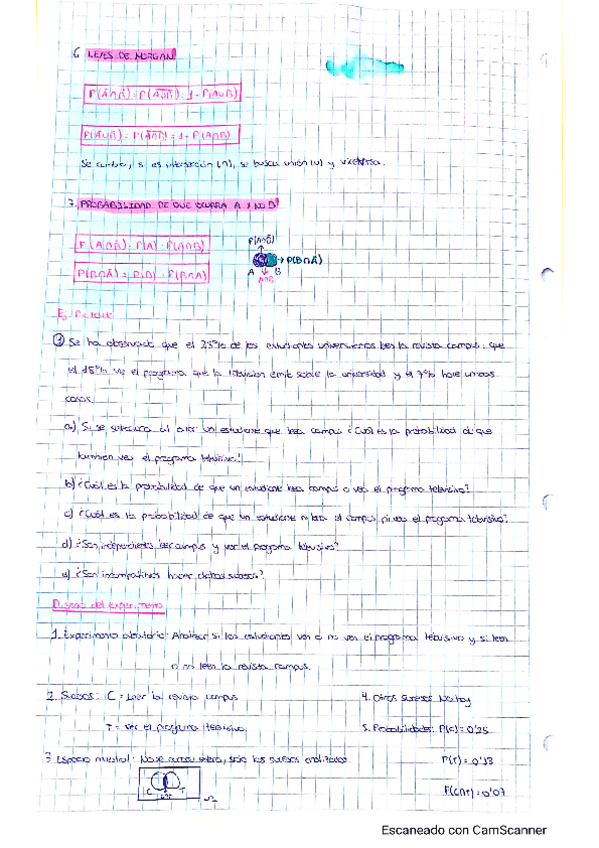 6 LEYES DE MORGAN
P(Ā∩B̄) = P(A̅U̅B̅) = 1 - P(AUB)
P(ĀUB̄) = P(A̅∩B̅) = 1 - P(A∩B)
Se cambia, si es intersección (∩), se busca unión (U) y viceversa.
7. PROBABILIDAD DE QUE OCURRA A Y NO B
P(A∩B̄) = P(A) - P(A∩B)
P(B∩Ā) = P(B) - P(B∩A)
P(A∩B̄)
→ P(B∩Ā)
A B
A∩B
Ej.
① Se ha observado que el 25% de los estudiantes universitarios lee la revista campus, que
el 15% ve el programa que la television emite sobre la universidad y el 7% hace ambas
cosas.
a) Si se selecciona al azar un estudiante que lea campus ¿Cuál es la probabilidad de que
tambien vea el programa televisivo?
b) ¿Cuál es la probabilidad de que un estudiante lea campus o vea el programa televisivo?
c) ¿Cuál es la probabilidad de que un estudiante ni lea el campus, ni vea el programa televisivo?
d) ¿Son independientes leer campus y ver el programa televisivo?
e) ¿Son incompatibles hacer dichos sucesos?
Diseño del experimento
1. Experimento aleatorio: Analizar si los estudiantes ven o no ven el programa televisivo y si leen
o no leen la revista campus.
2. Sucesos: C = Leer la revista campus
T = ver el programa televisivo
3. Espacio muestral: sucesos
C T
Ω
4. Otros sucesos No hay
5. Probabilidades: P(C) = 0'25
P(T) =
P(C∩T) = 0'07
Escaneado con CamScanner